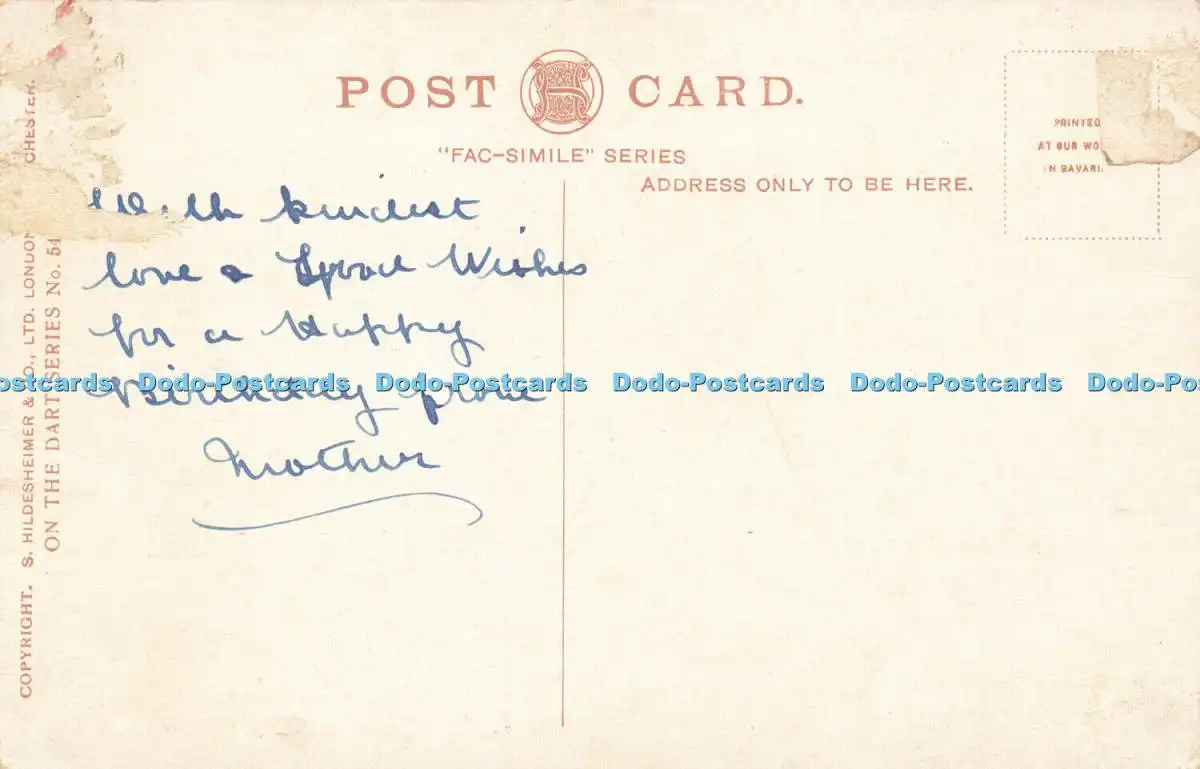 POST CARD.
"FAC-SIMILE" SERIES
ADDRESS ONLY TO BE HERE.
PRINTED
AT OUR WO
IN BAVARI.
With kindest
love & Good Wishes
for a Happy
Birthday from
Mother
COPYRIGHT. S. HILDESHEIMER & CO., LTD. LONDON CHESTER.
ON THE DART SERIES No. 54
ostcards Dodo-Postcards Dodo-Postcards Dodo-Postcards Dodo-Postcards Dodo-Po